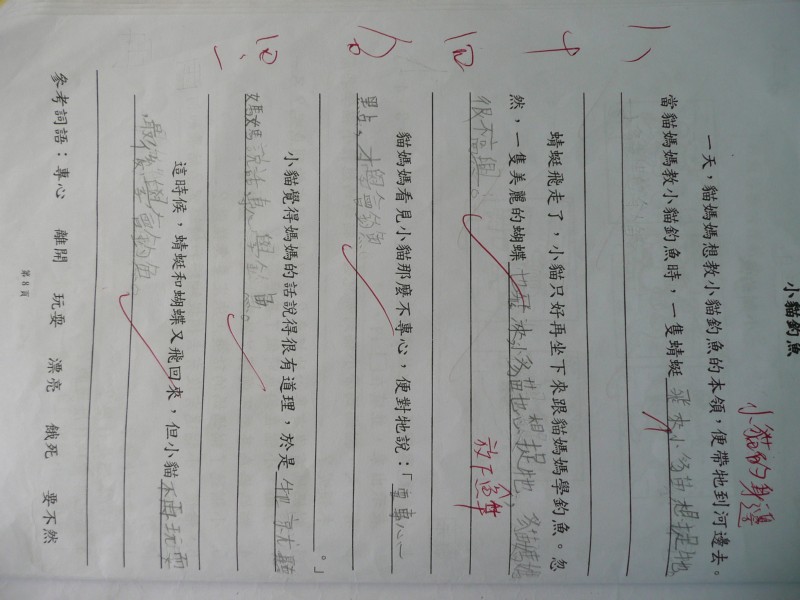 小貓釣魚
小貓的身邊
一天，貓媽媽想教小貓釣魚的本領，便帶牠到河邊去。
當貓媽媽教小貓釣魚時，一隻蜻蜓飛來小貓想捉牠
蜻蜓飛走了，小貓只好再坐下來跟貓媽媽學釣魚。忽
然，一隻美麗的蝴蝶也飛來小貓也想捉牠，貓媽媽
放下魚竿
很不高興。
貓媽媽看見小貓那麼不專心，便對牠說：「要專心
點，才學會釣魚
。」
小貓覺得媽媽的話說得很有道理，於是牠就聽
媽媽說話專心學釣魚。
這時候，蜻蜓和蝴蝶又飛回來，但小貓不再玩耍
最後學會釣魚。
參考詞語：專心 離開 玩耍 漂亮 餓死 要不然
第8頁